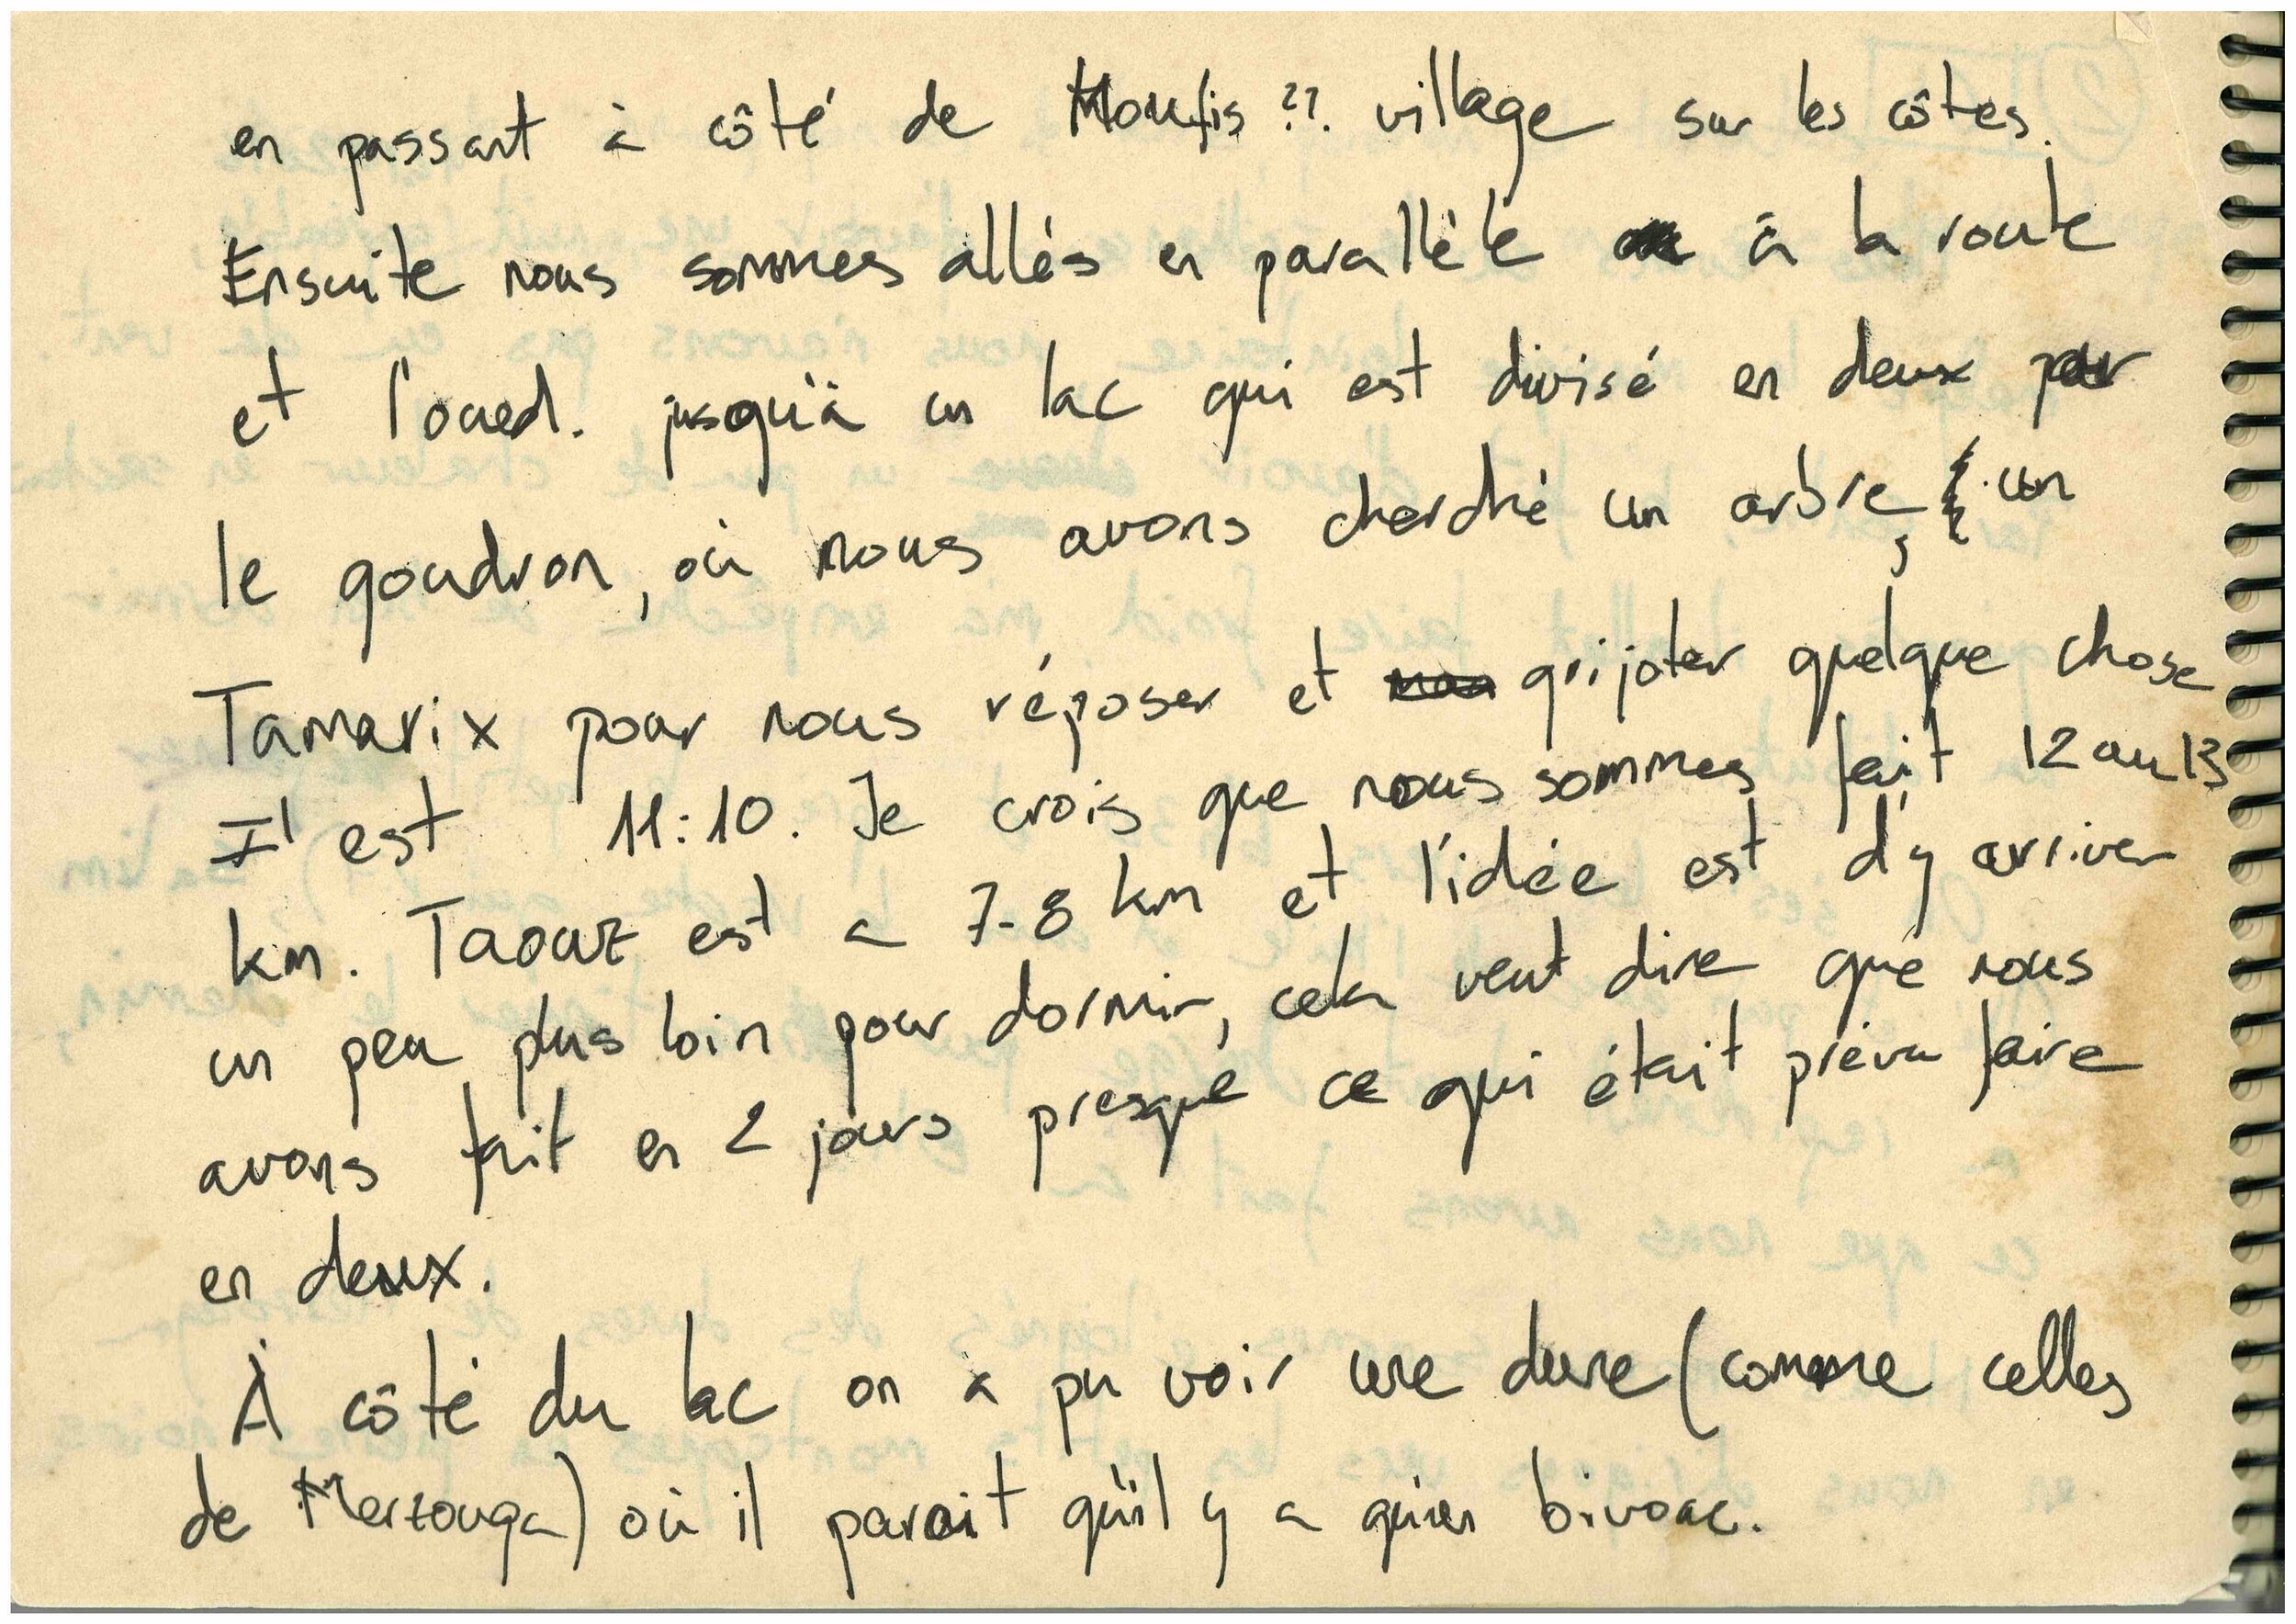 en passant à côté de Moufis ??. village sur les côtes.
Ensuite nous sommes allés en parallèle à la route
et l'oued. jusqu'à un lac qui est divisé en deux par
le goudron, où nous avons cherché un arbre, un
Tamarix pour nous réposer et grijoter quelque chose
Il est 11:10. Je crois que nous sommes fait 12 au 13
km. Taouz est a 7-8 km et l'idée est d'y arriver
un peu plus loin pour dormir, cela veut dire que nous
avons fait en 2 jours presque ce qui était prévu faire
en deux.
À côté du lac on a pu voir une dune (comme celles
de Merzouga) où il parait qu'il y a qu'un bivoac.